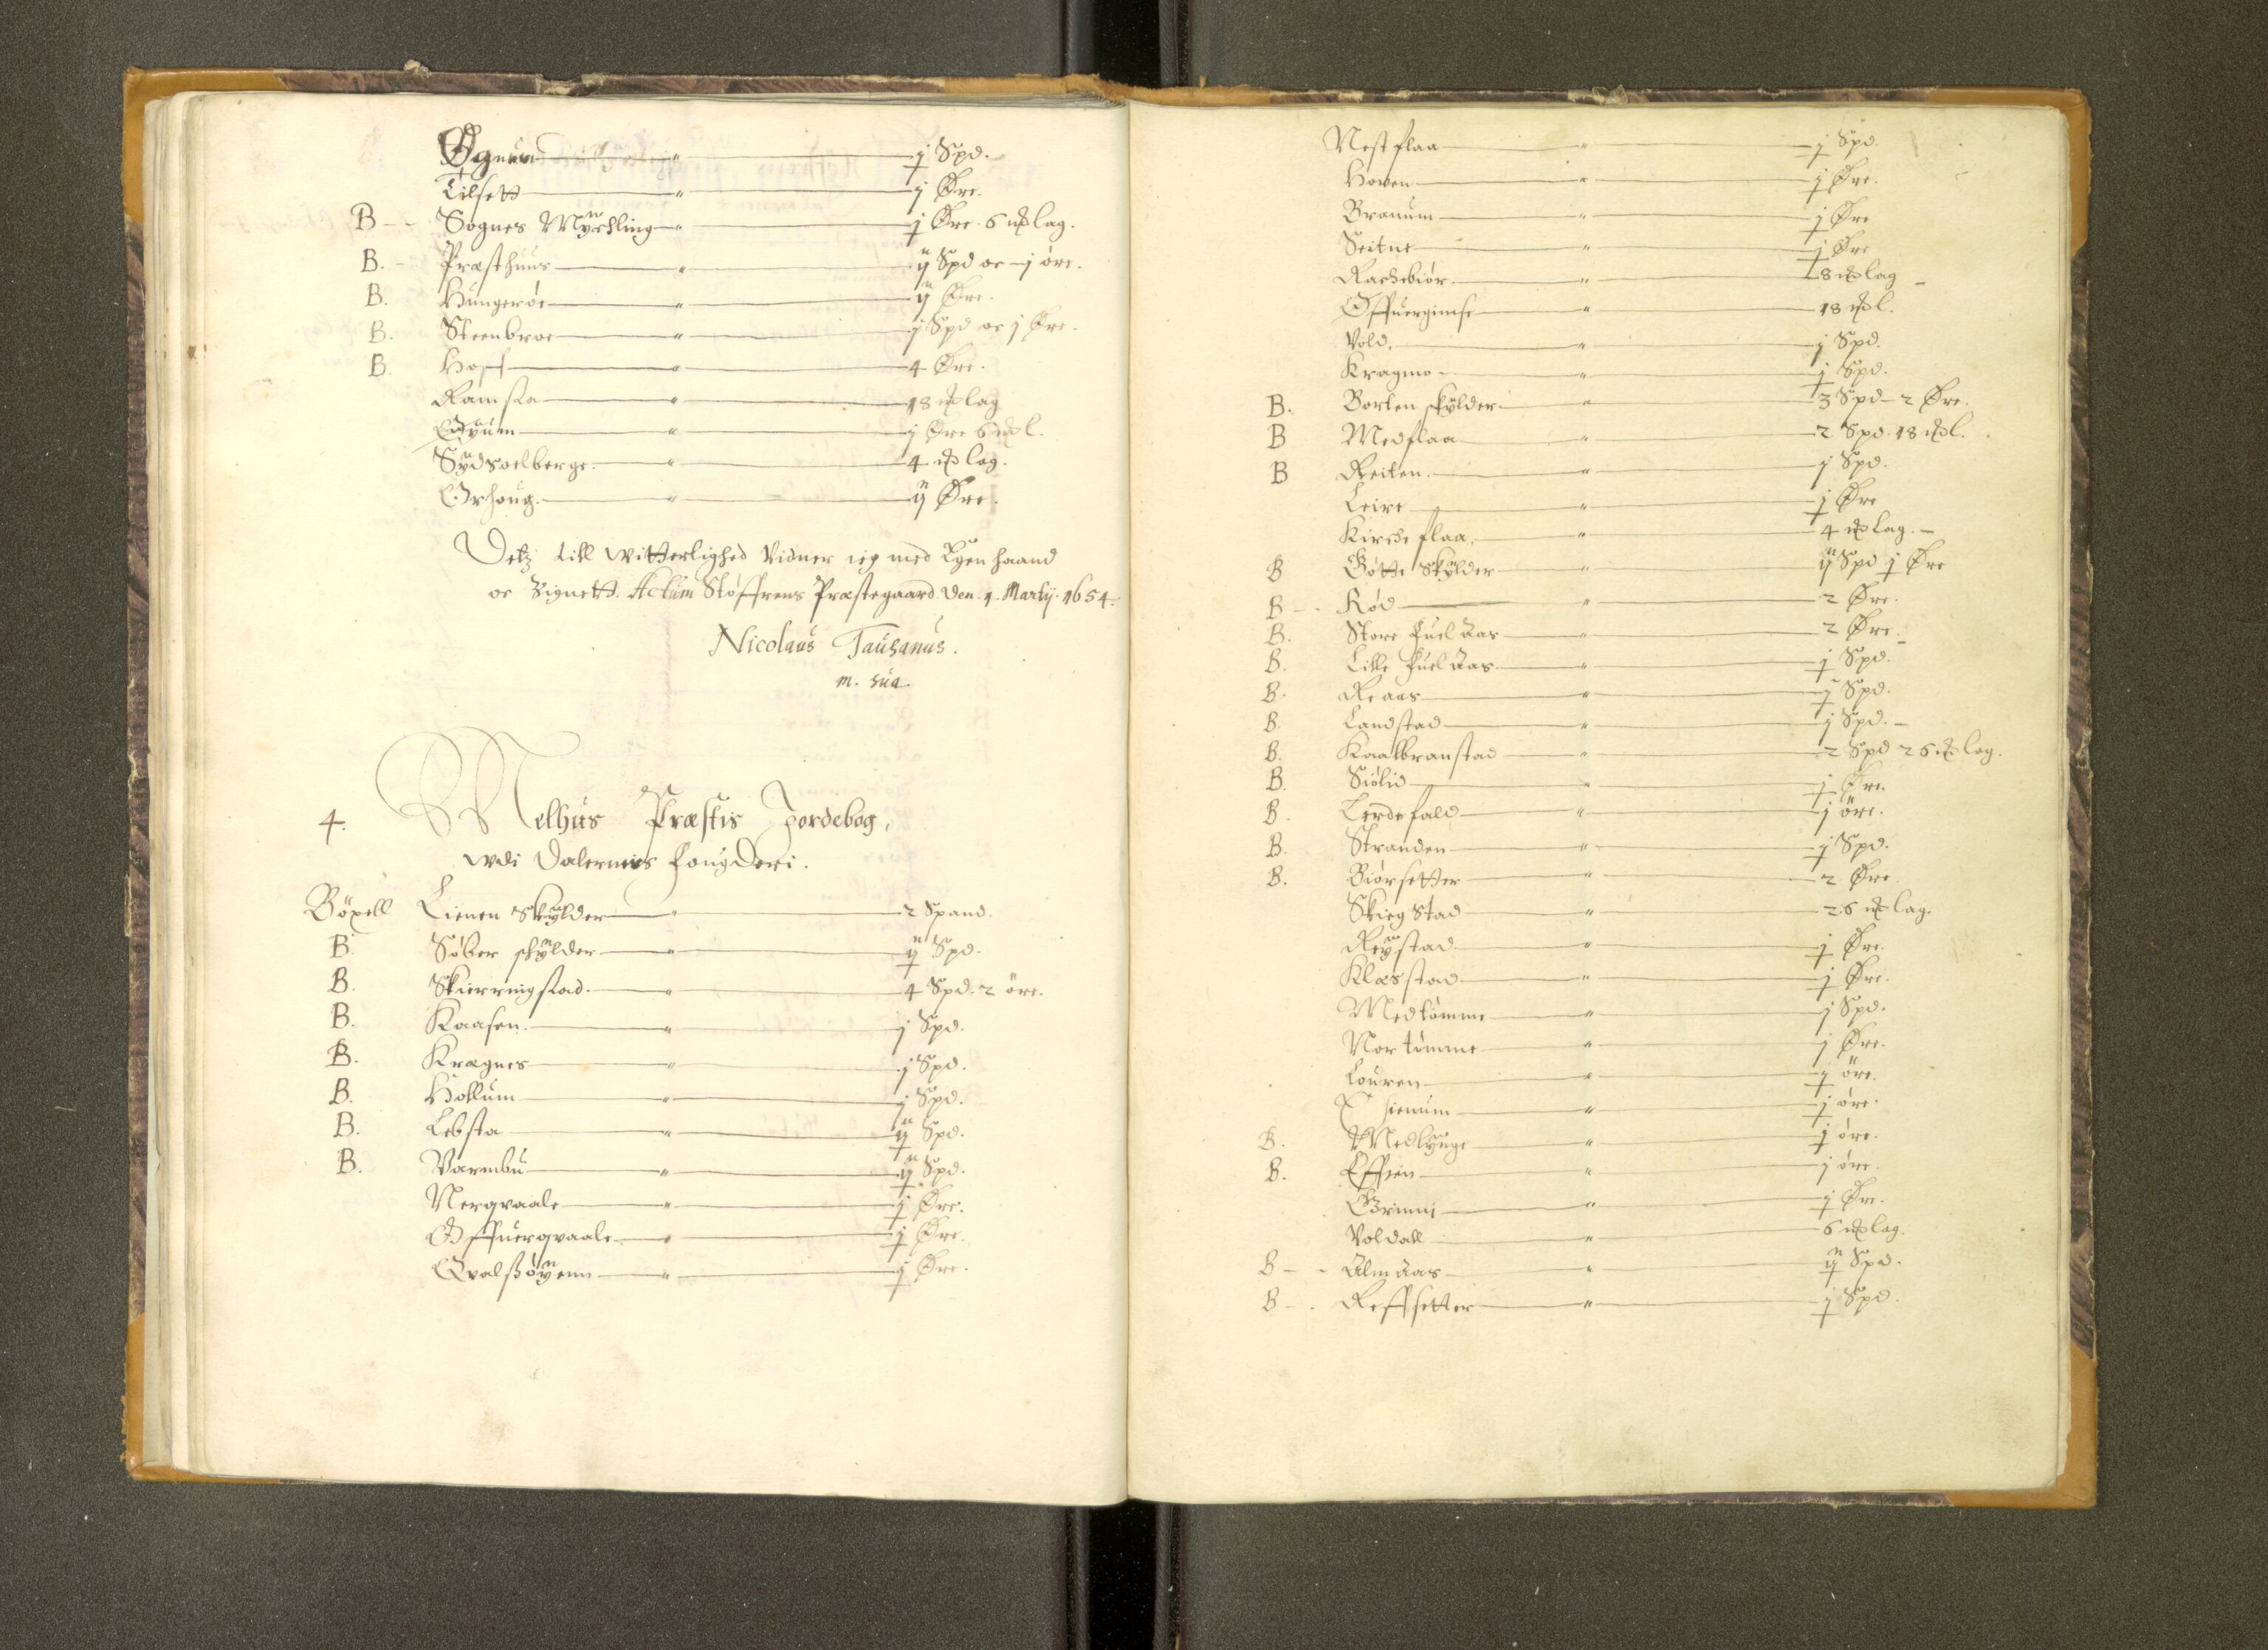 Øgnum — " — j Spd.
Tilsett — " — j Øre.
B -- Sognes Myrchling — " — j Øre. 6 mk lag.
B. - Præsthuus — " — ij Spd oc j øre.
B. Hungerøe — " — ij Øre.
B. Steenbroe — " — j Spd oc j Øre.
B. Hoff — " — 4 Øre.
Ramsta — " — 18 mk lag
Eggium — " — j Øre 6 mk l.
Sydsoelberge. — " — 4 mk lag.
Orhoug. — " — ij Øre.
Detz till witterlighed Vidner ieg med Egen haand
oc Zignett. Actum Støffrens Præstegaard den. 1. Martij. 1654.
Nicolaus Tausanus.
m. sua.
4. Melhus Præstis Jordebog,
udi Dalernnis Fougderi.
Böxell Lienen Skylder — " — 2 Spand.
B. Søber schylder — " — ij Spd.
B. Skierringstad. — " — 4 Spd. 2 öre.
B. Kaasen. — " — j Spd.
B. Kregnes — " — j Spd.
B. Hollum — " — j Spd.
B. Lebsta — " — ij Spd.
B. Varmbu — " — ij Spd.
Nerqvaale — " — j Øre.
Offuerqvaale — " — j Øre.
Qvalsøyenn — " — j Øre.
Nestflaa — " — j Spd.
Hoven — " — j Øre.
Branum — " — j Øre
Seitne — " — j Øre
Rachebiör — " — 8 mk lag -
Offuergimse — " — 18 mk l.
Vold. — " — j Spd.
Kragmo — " — j Spd.
B. Borten skylder — " — 3 Spd - 2 Øre.
B Medflaa — " — 2 Spd. 18 mk l.
B Reiten. — " — j Spd.
Leire — " — j Øre
Kircheflaa. — " — 4 mk lag. -
B Gøtte Skylder — " — ij Spd j Øre
B -. Rød — " — 2 Øre.
B. Store Fuel Aas — " — 2 Øre.
B. Lille Fuel Aas — " — j Spd.
B. Reaas — " — j Spd.
B. Landstad — " — j Spd. -
B. Kaalbranstad — " — 2 Spd 26 mk lag.
B. Siølid — " — j Øre.
B. Lerdefald — " — j öre.
B. Stranden — " — j Spd.
B. Biørsetter — " — 2 Øre.
Skiegstad — " — 26 mk lag.
Reystad — " — j Øre.
Klæsstad — " — j Øre.
Medtömme — " — j Spd.
Nortömme — " — j Øre.
Louren — " — j öre.
Thienum — " — j øre.
B. Medlyuge — " — j øre.
B. Effien — " — j øre.
Grinni — " — j Øre.
Voldall — " — 6 mk lag.
B - - Alm Aas — " — ij Spd.
B - . Reffsetter — " — j Spd.